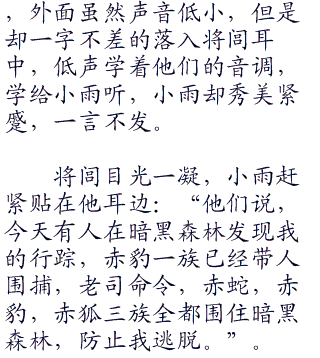 ，外面虽然声音低小，但是
却一字不差的落入将闾耳
中，低声学着他们的音调，
学给小雨听，小雨却秀美紧
蹙，一言不发。
将闾目光一凝，小雨赶
紧贴在他耳边：“他们说，
今天有人在暗黑森林发现我
的行踪，赤豹一族已经带人
围捕，老司命令，赤蛇，赤
豹，赤狐三族全都围住暗黑
森林，防止我逃脱。”。